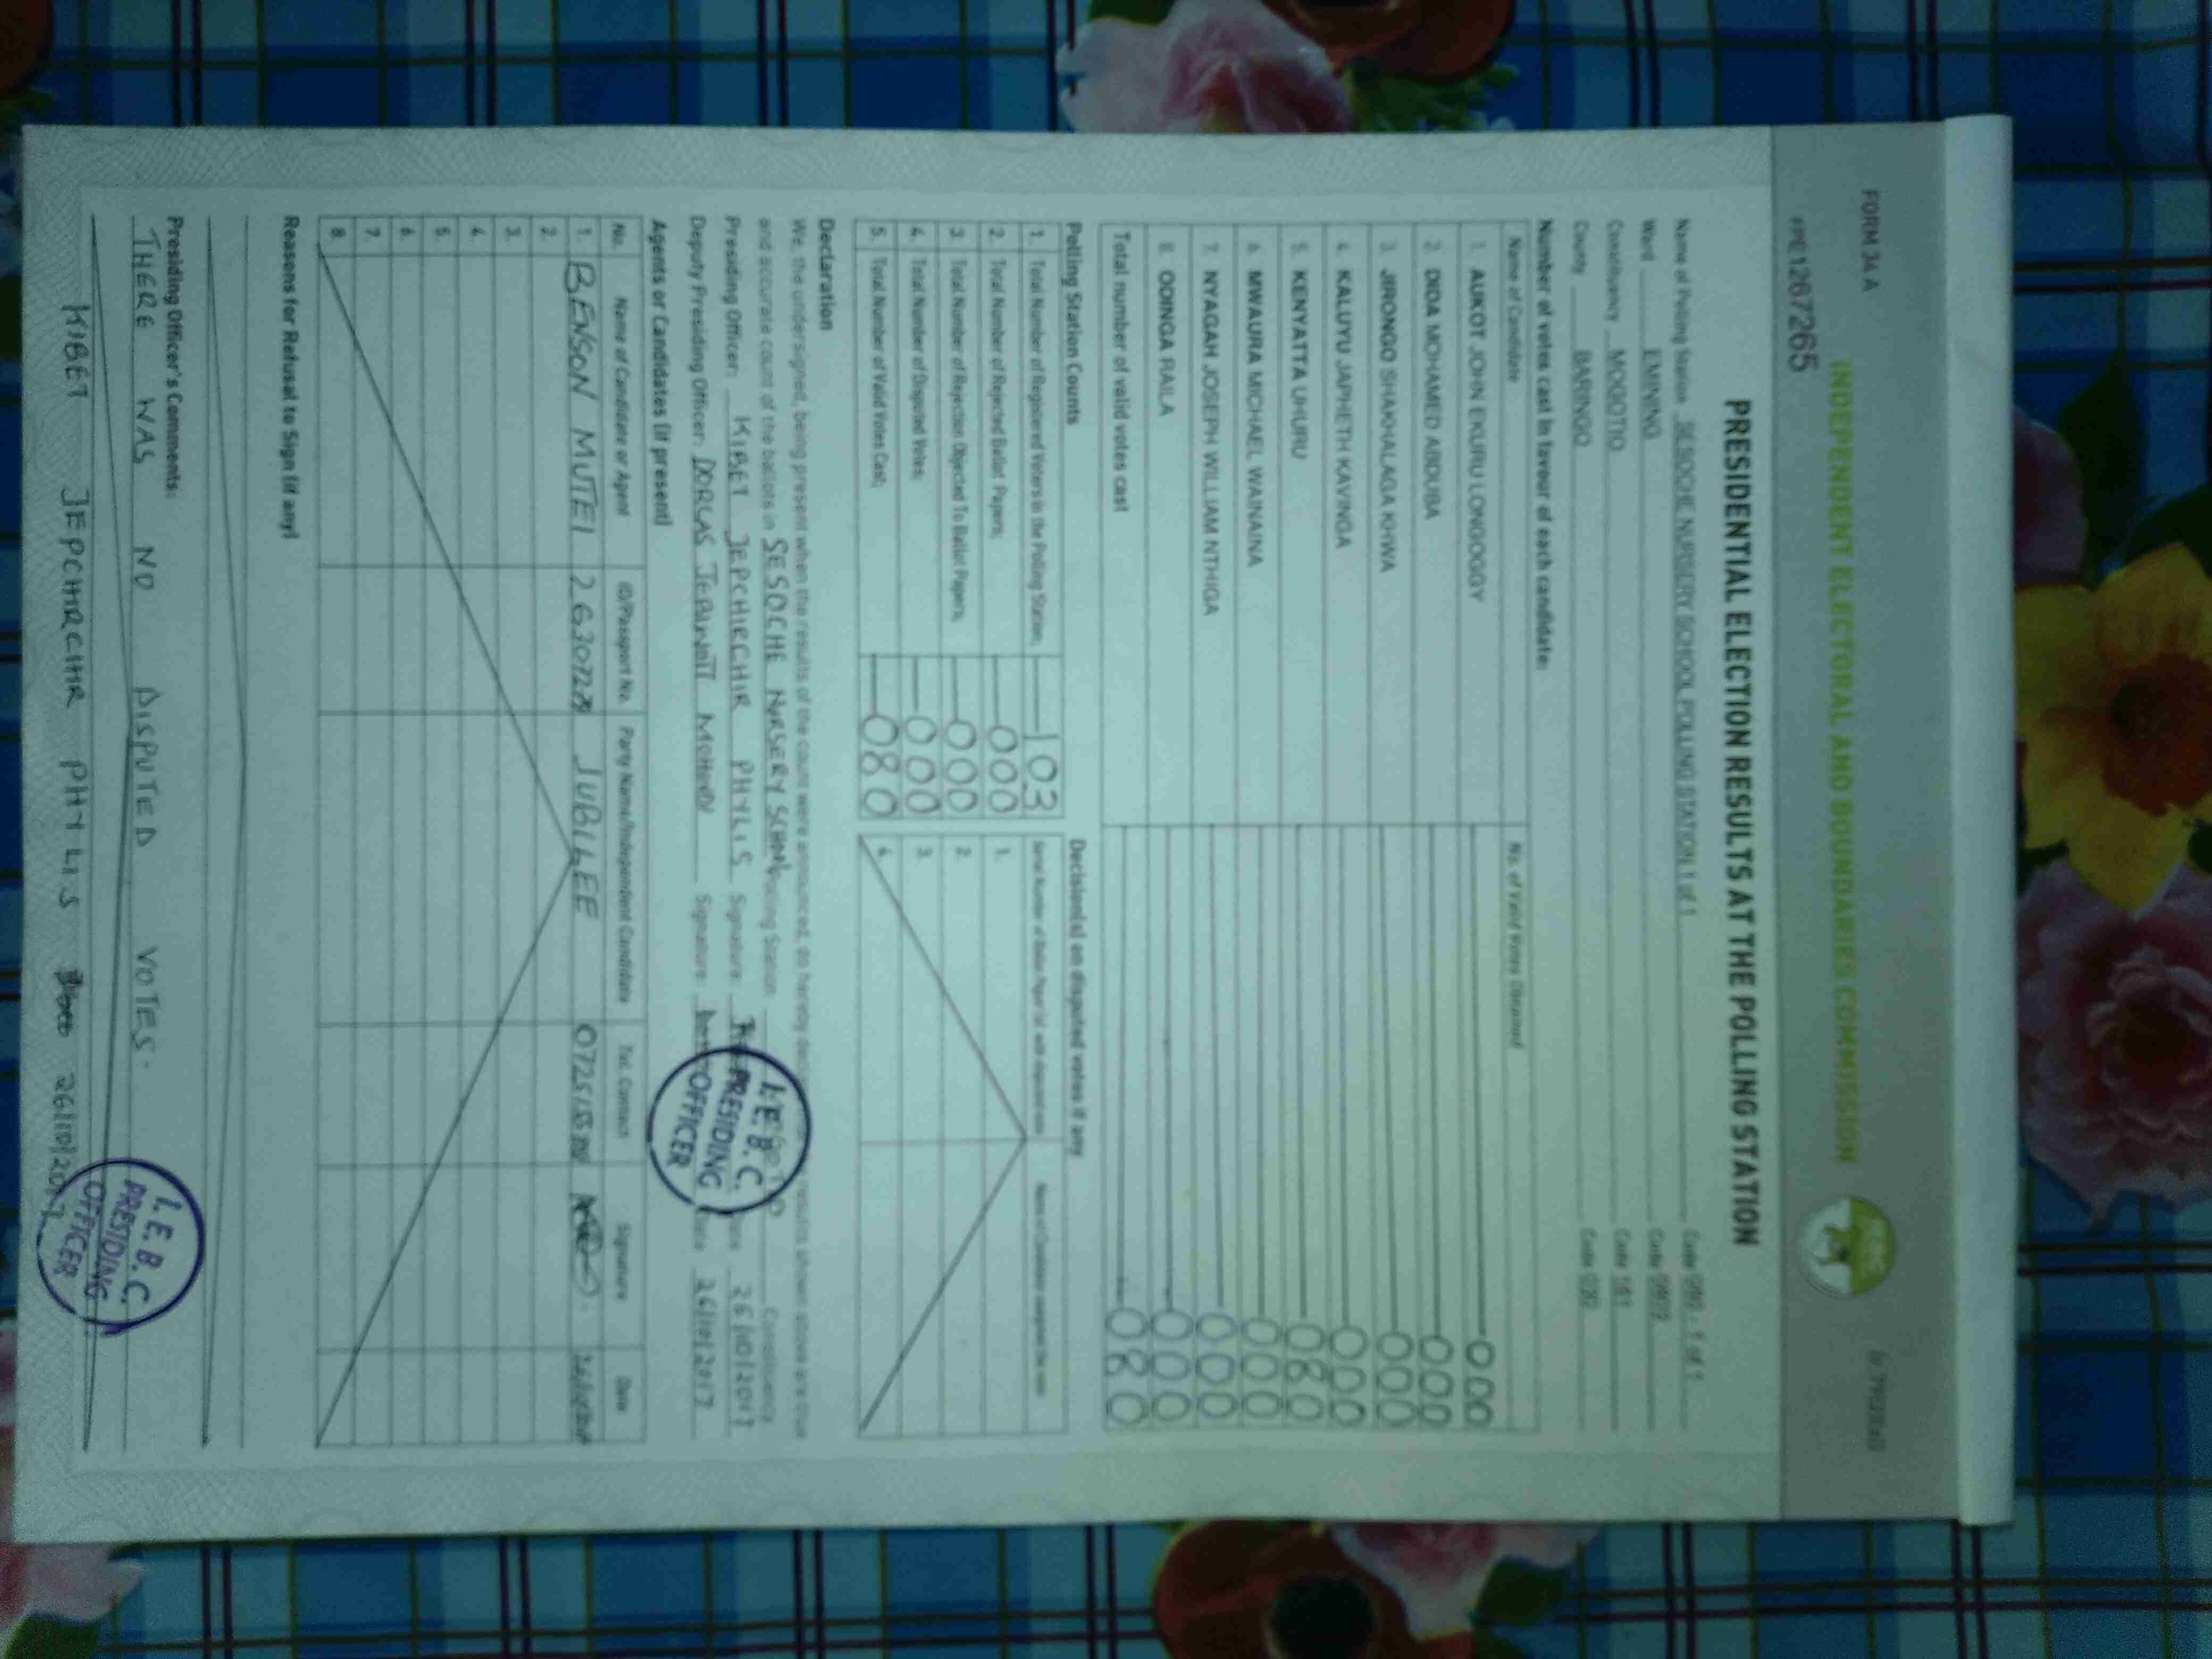 FORM 34 A
INDEPENDENT ELECTORAL AND BOUNDARIES COMMISSION
PRESIDENTIAL ELECTION RESULTS AT THE POLLING STATION
Name of Polling Station SESOCHE NURSERY SCHOOL POLLING STATION 1 of 1 Code
Ward EMINING Code
Constituency MOGOTIO Code 161
County BARINGO Code 030
Number of votes cast in favour of each candidate:
Name of Candidate No. of Valid Votes Obtained
1. AUKOT JOHN EKURU LONGOGGY 000
2. DIDA MOHAMED ABDUBA 000
3. JIRONGO SHAKHALAGA KHWA 000
4. KALUYU JAPHETH KAVINGA 000
5. KENYATTA UHURU 080
6. MWAURA MICHAEL WAINAINA 000
7. NYAGAH JOSEPH WILLIAM NTHIGA 000
8. ODINGA RAILA 000
Total number of valid votes cast 080
Polling Station Counts
1. Total Number of Registered Voters in the Polling Station; 103
2. Total Number of Rejected Ballot Papers; 000
3. Total Number of Rejection Objected To Ballot Papers; 000
4. Total Number of Disputed Votes; 000
5. Total Number of Valid Votes Cast; 080
Decision(s) on disputed votes if any
1.
2.
3.
4.
Declaration
We, the undersigned, being present when the results of the count were announced, do hereby declare results shown above are true
and accurate count of the ballots in SESOCHE NURSERY SCHOOL Polling Station Constituency
Presiding Officer: KIBET JEPCHIRCHIR PHYLIS Signature: 26/10/2017
Deputy Presiding Officer: DORCAS Signature: 26/10/2017
I.E.B.C.
PRESIDING
OFFICER
Agents or Candidates (if present)
No. Name of Candidate or Agent ID/Passport No. Party Name/Independent Candidate Tel. Contact Signature Date
1. BENSON MUTEI JUBILEE
2.
3.
4.
5.
6.
7.
8.
Reasons for Refusal to Sign (if any)
Presiding Officer's Comments:
THERE WAS NO DISPUTED VOTES.
KIBET JEPCHIRCHIR PHYLIS 26/10/2017
I.E.B.C.
PRESIDING
OFFICER